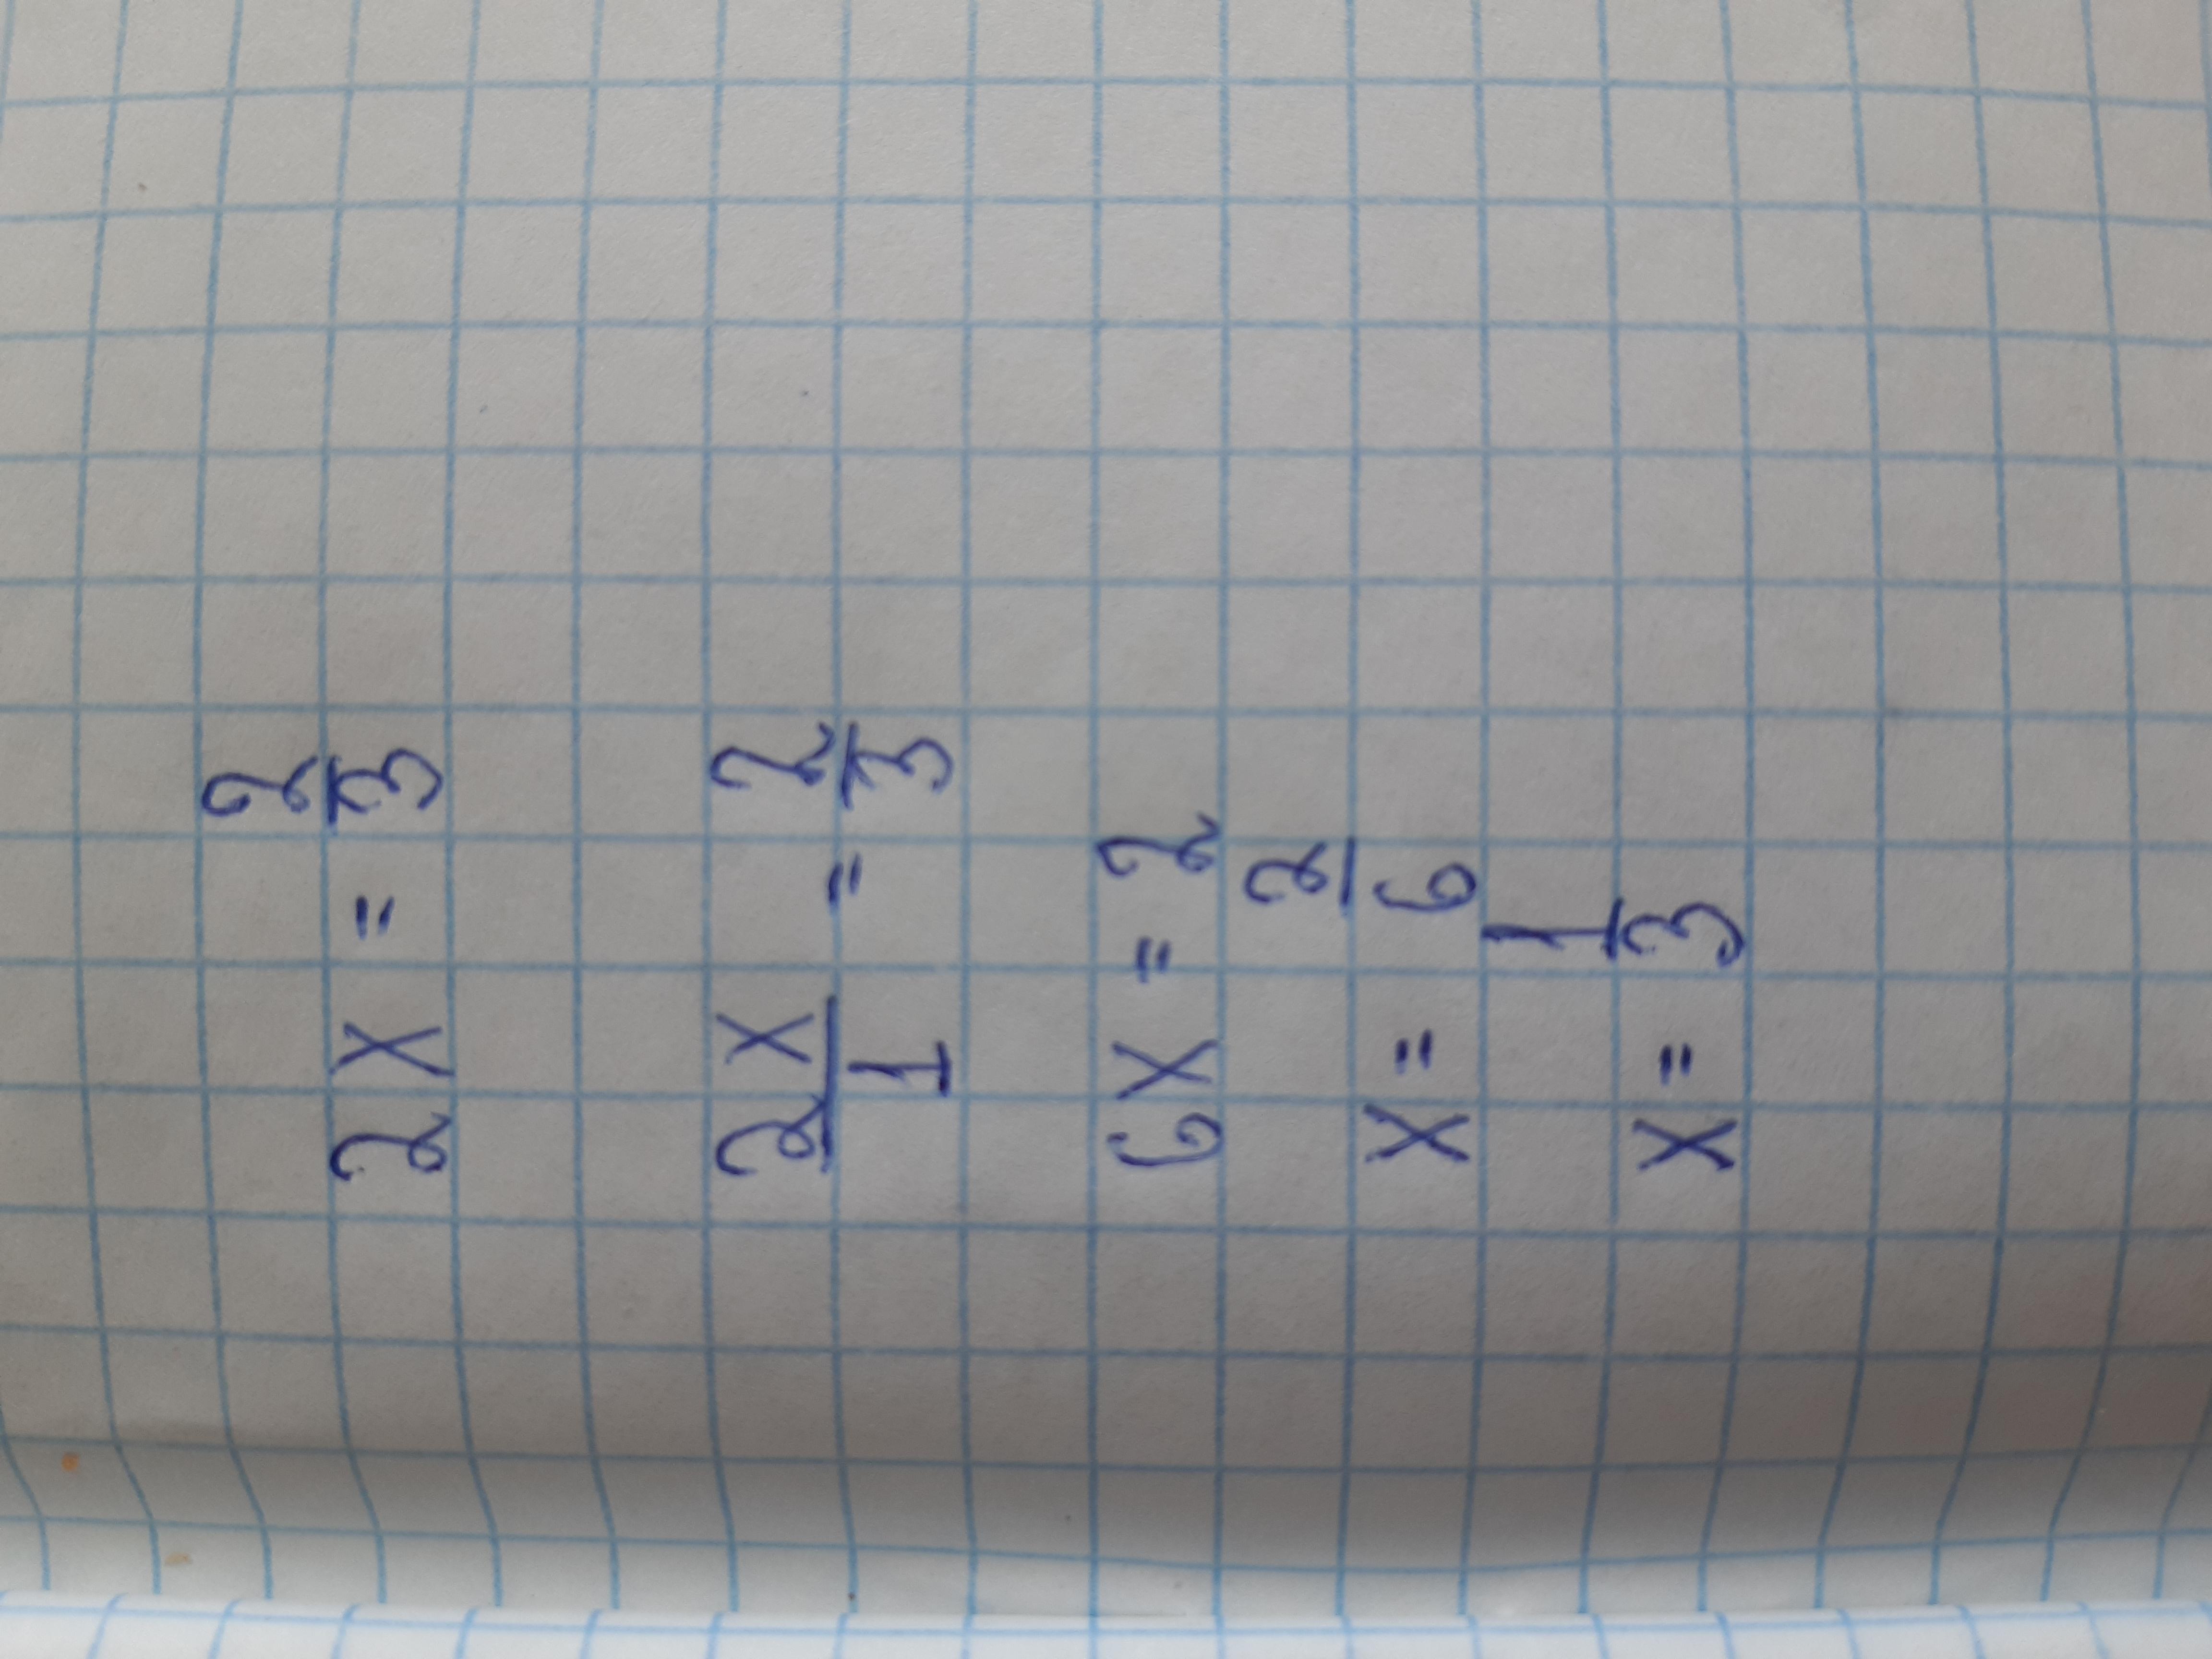 2x = 2/3
2x/1 = 2/3
6x = 2
x = 2/6
x = 1/3